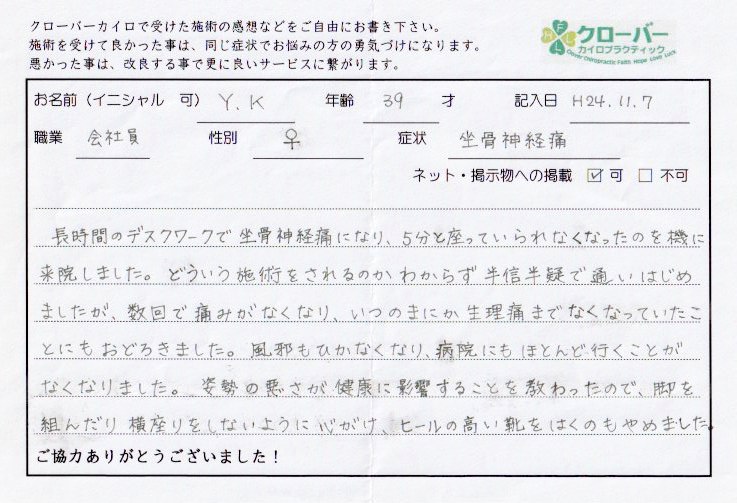 クローバーカイロで受けた施術の感想などをご自由にお書き下さい。
施術を受けて良かった事は、同じ症状でお悩みの方の勇気づけになります。
悪かった事は、改良する事で更に良いサービスに繋がります。
HFLL
クローバー
カイロプラクティック
Clover Chiropractic Faith Hope Love Luck
お名前（イニシャル 可） Y.K 年齢 39 才 記入日 H24.11.7
職業 会社員 性別 ♀ 症状 坐骨神経痛
ネット・掲示物への掲載 ☑ 可 □ 不可
長時間のデスクワークで坐骨神経痛になり、5分と座っていられなくなったのを機に
来院しました。どういう施術をされるのかわからず半信半疑で通いはじめ
ましたが、数回で痛みがなくなり、いつのまにか生理痛までなくなっていたこ
とにもおどろきました。風邪もひかなくなり、病院にもほとんど行くことが
なくなりました。姿勢の悪さが健康に影響することを教わったので、脚を
組んだり横座りをしないように心がけ、ヒールの高い靴をはくのもやめました。
ご協力ありがとうございました！